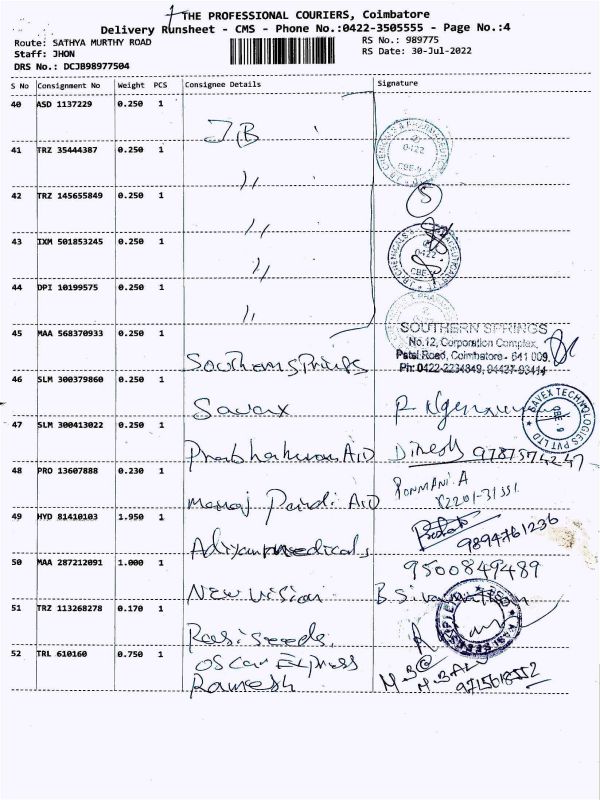 THE PROFESSIONAL COURIERS, Coimbatore
Delivery Runsheet - CMS - Phone No.:0422-3505555 - Page No.:4
Route: SATHYA MURTHY ROAD RS No.: 989775
Staff: JHON RS Date: 30-Jul-2022
DRS No.: DCJB98977504
S No Consignment No Weight PCS Consignee Details Signature
40 ASD 1137229 0.250 1 J.B
41 TRZ 35444387 0.250 1 ,, 0422 CBE-9
42 TRZ 145655849 0.250 1 ,, 5
43 IXM 501853245 0.250 1 ,, 0422 CBE
44 DPI 10199575 0.250 1 ,,
45 MAA 568370933 0.250 1 Southern springs
SOUTHERN SPRINGS
No.12, Corporation Complex,
Patel Road, Coimbatore - 641 009.
Ph: 0422-2234849, 94437-93414
46 SLM 300379860 0.250 1 Savex
SAVEX TECHNOLOGIES PVT LTD
CBE. 9
47 SLM 300413022 0.250 1 Prabhakaran AID Dinesh 9787574247
48 PRO 13607888 0.230 1 Manoj Pandi AID PONMANI. A
49 HYD 81410103 1.950 1 Adiyan medicals 9894761236
50 MAA 287212091 1.000 1 New vision 9500849489
51 TRZ 113268278 0.170 1 Rasi seeds.
52 TRL 610160 0.750 1 OScar Express
Ramesh 9715618552